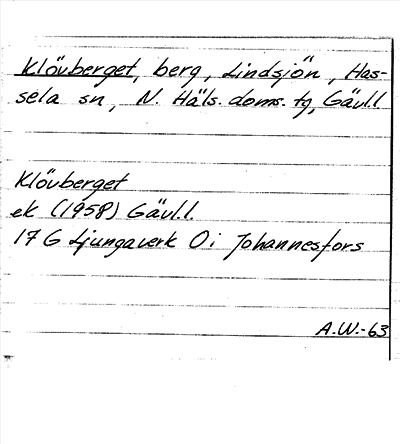 Klövberget, berg, Lindsjön, Has-
sela sn, N. Häls. doms. tg, Gävl.l
Klövberget
ek (1958) Gävl.l.
17 G Ljungaverk O i Johannesfors
A.W.-63